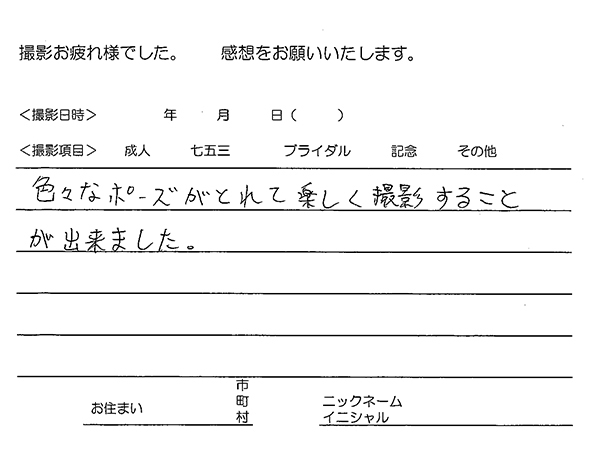 撮影お疲れ様でした。 感想をお願いいたします。
＜撮影日時＞ 年 月 日（ ）
＜撮影項目＞ 成人 七五三 ブライダル 記念 その他
色々なポーズがとれて楽しく撮影すること
が出来ました。
お住まい 市町村 ニックネーム イニシャル